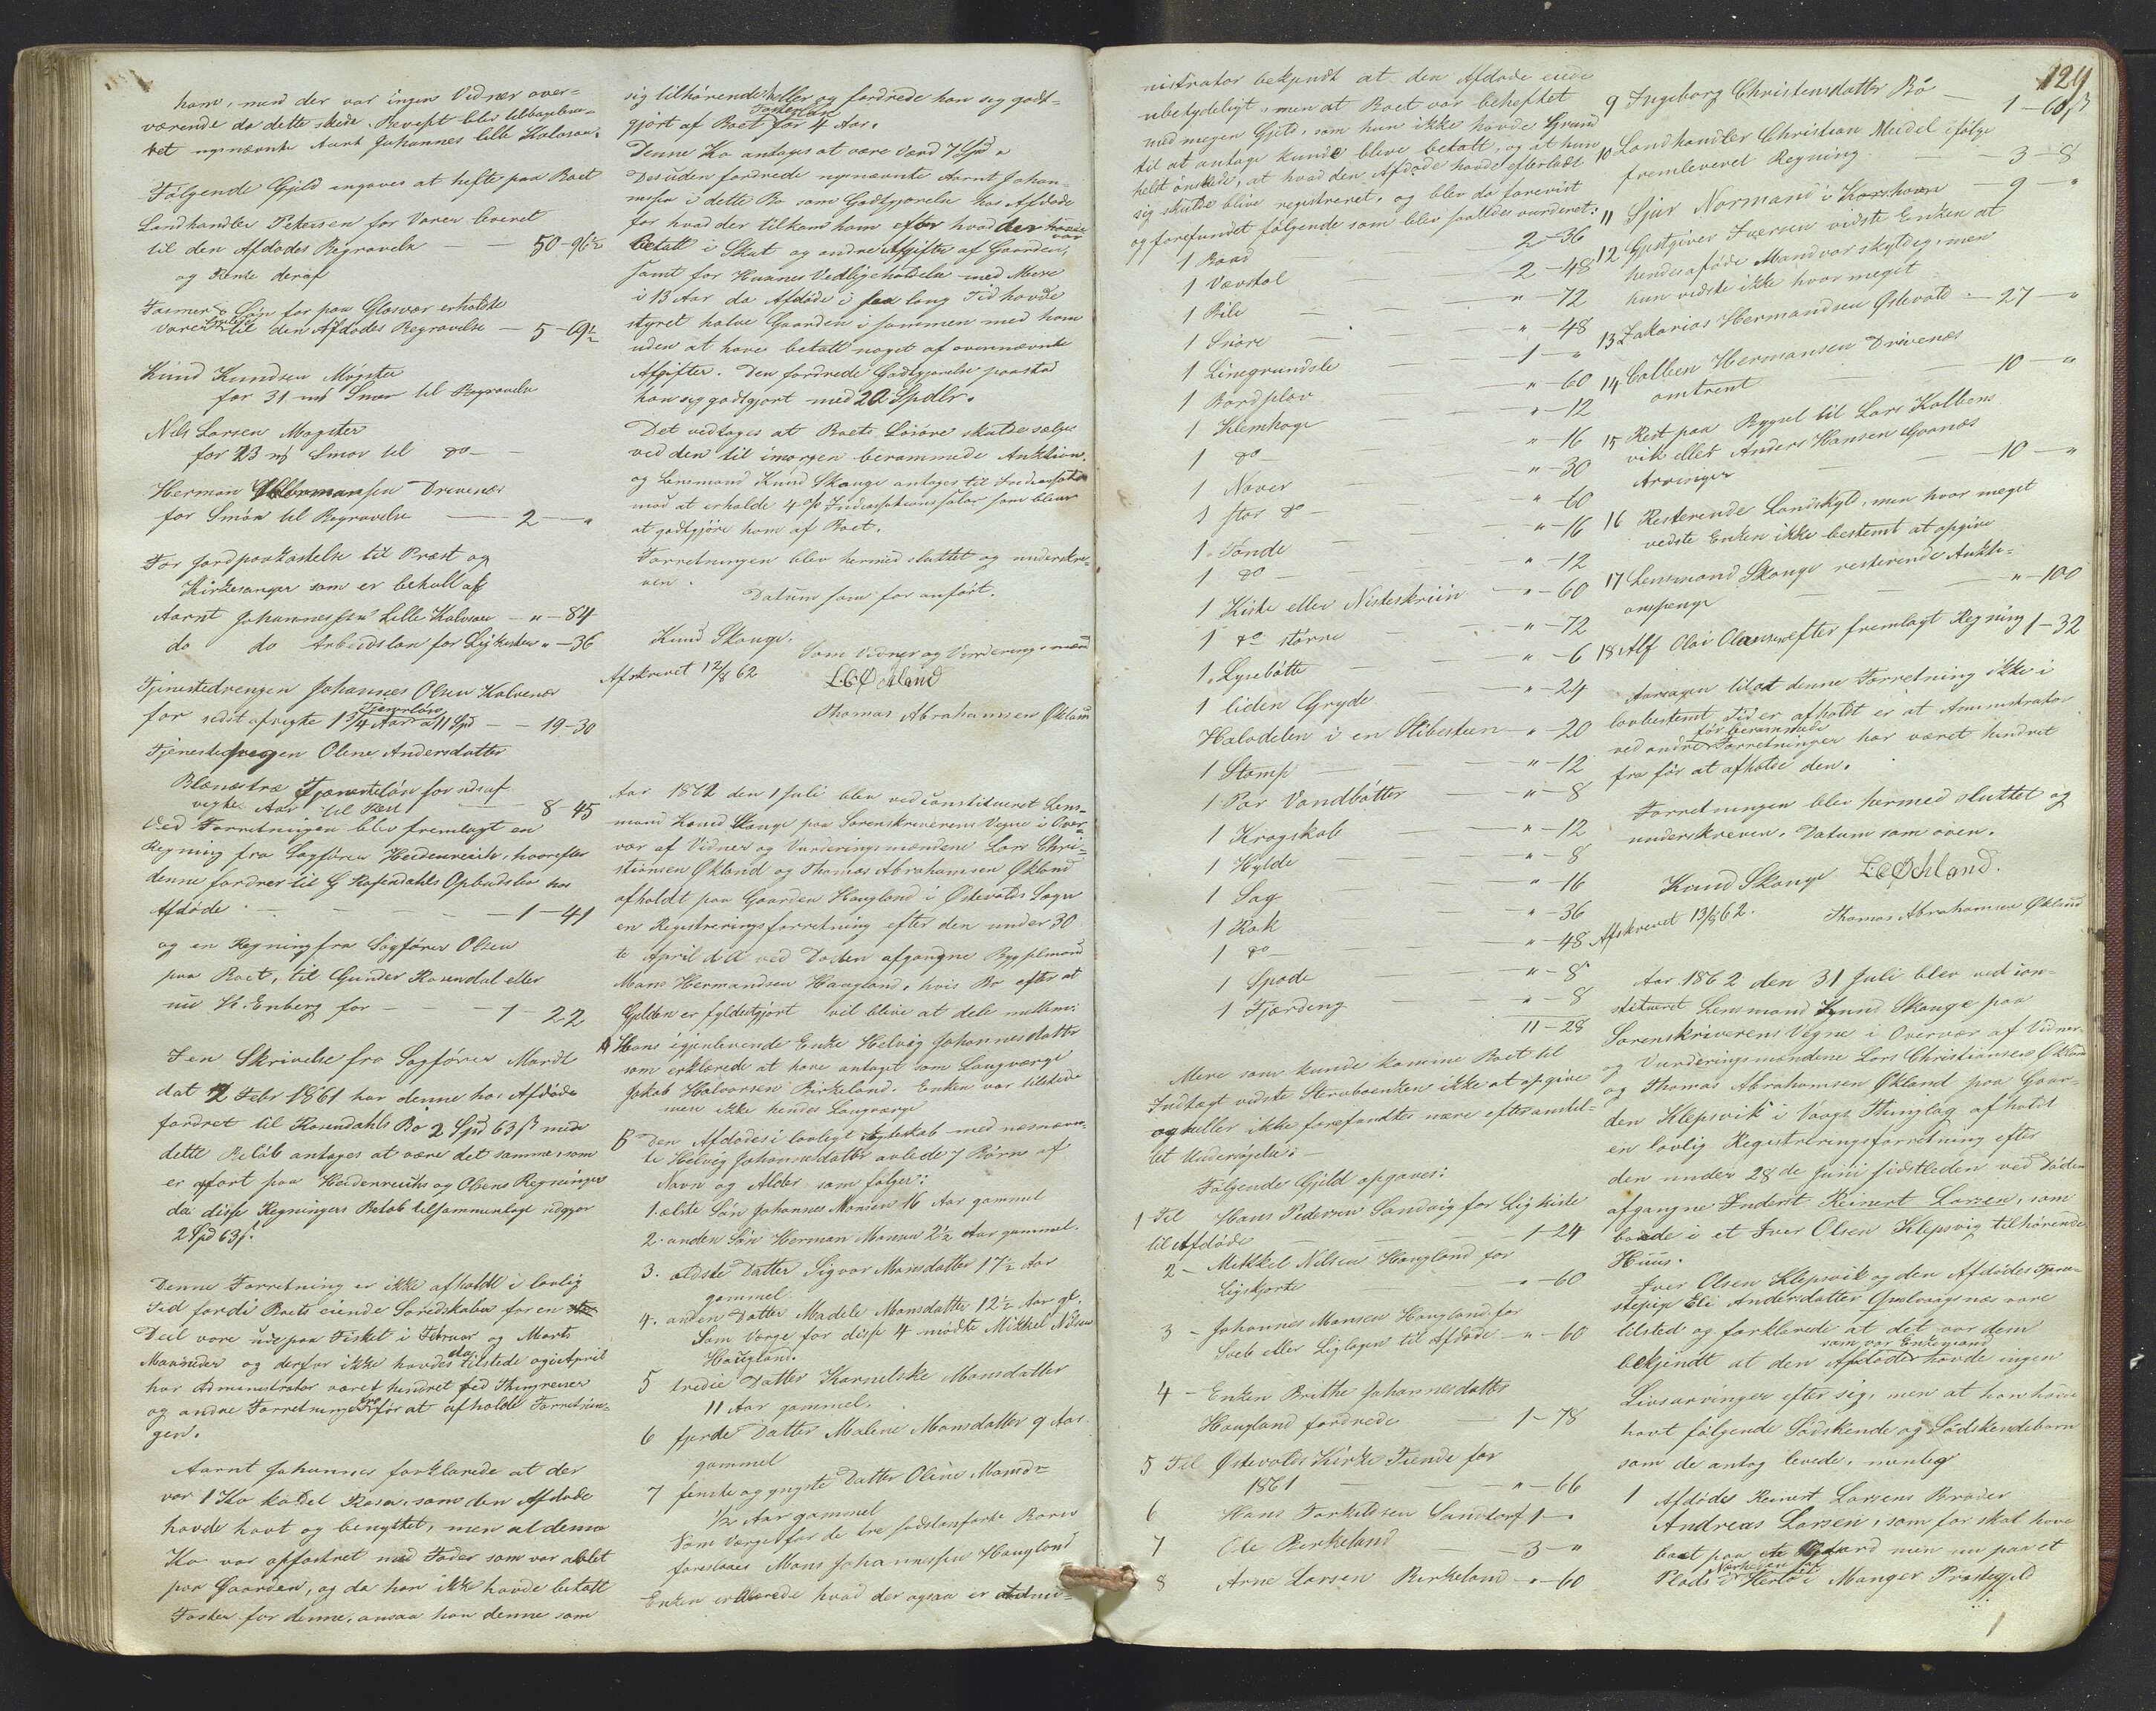 ham, men der var ingen Vidner over-
værende da dette skede. Bevist blev
nysnævnte Aarnt Johannes lille Kalvenes.
Følgende Gjeld angaves at hefte paa Boet
Landhandler Petersen for Varer leveret
til den Afdødes Begravelse — 50-96½
og Rente deraf
& Søn for paa Glesvær erholdte
Varer til den Afdødes Begravelse — 5-69½
Knud Knudsen Møgster
for 31 mk Smør til Begravelse
Nils Larsen Møgster
for 23 mk Smør til do —
Herman Hermansen Drivenes
for Smør til Begravelse — 2 — "
For Jordpaakastelse til Præst og
Kirkesanger som er betalt af
Aarnt Johannessen Lille Kalvenes — " — 84
do do Arbeidsløn for Ligkisten " — 36
Tjenestedrengen Johannes Olsen Kalvenes
for sidst afvigte 1¾ Aar Tjenerløn a 11 Spd — 19-30
Tjenestepigen Oline Andersdatter
Blænæstræ Tjenesteløn for sidstaf
vigte Aar til Rest — 8-45
Ved Forretningen blev fremlagt en
Regning fra Sagfører Heidenreich, hvorefter
denne fordrer til G Rosendahls Opbudsbo hos
Afdøde — 1-41
og en Regning fra Sagfører Olsen
paa Boet, til Gunder Rosendal eller
nu H. Enberg for — 1-22
I en Skrivelse fra Sagfører Mardt
dat 2 Febr 1861 har denne hos Afdøde
fordret til Rosendahls Bo 2 Spd 63 ß men
dette Beløb antages at være det samme, som
er opført paa Heidenreichs og Olsens Regninger
da disse Regningers Beløb tilsammenlagt udgjør
2 Spd 63 ß.
Denne Forretning er ikke afholdt i lovlig
Tid fordi Boets eiende Søredskaber for en
Deel vare ude paa Fisket i Februar og Marts
Maaneder og derfor ikke havdes da tilstede og i April
har Administrator været hindret ved Thingreiser
og andre Forretninger fra før at afholde Forretnin-
gen.
Aarnt Johannes forklarede at der
var 1 Ko kaldet Rosa, som den Afdøde
havde havt og benyttet, men at denne
Ko var opfostret med Foder som var avlet
paa Gaarden, og da han ikke havde betalt
Foster for denne, ansaa han denne som
sig tilhørende eller og fordrede han sig godt-
gjort af Boet Fosterløn for 4 Aar.
Denne Ko antages at være værd 7 Spd "
Desuden fordrede nysnævnte Aarnt Johan-
nessen i dette Bo som Godtgjørelse hos Afdøde
for hvad der tilkom ham efter hvad der havde
betalt i Skat og andre Afgifter af Gaarden,
samt for Husenes Vedligeholdelse med Mere
i 13 Aar da Afdøde i saa lang Tid havde
styret halve Gaarden i sammen med ham
uden at have betalt noget af ovennævnte
Afgifter. Den fordrede Godtgjørelse paastod
han sig godtgjort med 20 Spdlr.
Det vedtoges at Boets Løsøre skulde sælges
ved den til imorgen berammede Auktion
og Lensmand Knud Skauge antages til Indkassator
mod at erholde 4 % Indkassationssalær som bliver
at godtgjøre ham af Boet.
Forretningen blev hermed sluttet og underskre-
ven.
Datum som før anført.
Knud Skauge. Som Vidner og Vurderingsmænd
Afskrevet 12/8 62 L C Økland
Thomas Abrahamsen Økland
Aar 1862 den 1 Juli blev ved constitueret Lens-
mand Knud Skauge paa Sorenskriverens Vegne i Over-
vær af Vidner og Vurderingsmændene Lars Chri-
stiansen Økland og Thomas Abrahamsen Økland
afholdt paa Gaarden Haugland i Østevolds Sogn
en Registreringsforretning efter den under 30
te April d A ved Døden afgangne Bygselmand
Mons Hermandsen Haugland, hvis Bo efter at
Gjelden er fyldestgjort vil blive at dele mellem:
A Hans igjenlevende Enke Helvig Johannesdatter
som erklærede at have antaget som Laugværge
Jakob Halvorsen Birkeland. Enken var tilstede
men ikke hendes Laugværge
B Den Afdødes i lovligt Ægteskab med næsnævn-
te Helvig Johannesdatter avlede 7 Børn af
Navn og Alder som følger:
1. ældste Søn Johannes Monsen 16 Aar gammel
2. anden Søn Herman Monsen 2½ Aar gammel.
3. ældste Datter Sigvor Monsdatter 17½ Aar
gammel.
4. anden Datter Madele Monsdatter 12½ Aar gl.
Som Værge for disse 4 mødte Mikkel Nilsen
Haugland.
5 tredie Datter Karnelske Monsdatter
11 Aar gammel.
6 fjerde Datter Malene Monsdatter 9 Aar
gammel
7 femte og yngste Datter Oline Monsd=
½ Aar gammel
Som Værge for de tre sidstanførte Børn
foreslaaes Mons Johannessen Haugland
Enken erklærede hvad der ogsaa er Admi-
129
nistrator bekjendt at den Afdøde eiede
ubetydeligt, men at Boet var beheftet
med megen Gjeld, som hun ikke havde Grund
til at antage kunde blive betalt, og at hun
helst ønskede, at hvad den Afdøde havde efterladt
sig skulde blive registreret, og blev da forevist
og forefundet følgende som blev saaledes vurderet:
1 Baad — 2-36
1 Vævstol — 2-48
1 Bile — " — 72
1 Snøre — " — 48
1 Linegrundsle — 1 — "
1 Bordplov — " — 60
1 Klemhage — " — 12
1 do — " — 16
1 Naver — " — 30
1 stor do — " — 60
1 Tønde — " — 16
1 do — " — 12
1 Kiste eller Nisteskriin — " — 60
1 do større — " — 72
1 Lysebøtte — " — 6
1 liden Gryde — " — 24
Halvdelen i en Slibesteen — " — 20
1 Stamp — " — 12
1 Par Vandbøtter — " — 8
1 Kragskab — " — 12
1 Hylde — " — 8
1 Sag — " — 16
1 Kak — " — 36
1 do — " — 48
1 Spade — " — 8
1 Fjerding — " — 8
11-28
Mere som kunde komme Boet til
Indtægt vidste Stervboenken ikke at opgive
og heller ikke forefandtes mere efter anstil-
let Undersøgelse:—
Følgende Gjeld opgaves:
1 Til Hans Pedersen Sandvig for Ligkiste
til Afdøde — 1-24
2 — Mikkel Nilsen Haugland for
Ligskjorte — " — 60
3 — Johannes Monsen Haugland for
Sveb eller Liglagen til Afdøde — " — 60
4 — Enken Brithe Johannesdatter
Haugland fordrede — 1-78
5 Til Østevolds Kirke Tiende for
1861 — " — 66
6 Hans Torkildsen Sandtorf 1 — "
7 Ole Birkeland — 3 — "
8 Arne Larsen Birkeland — " — 60
9 Ingeborg Christensdatter Bø — 1-60 ß
10 Landhandler Christian Meidel ifølge
fremleveret Regning — 3-8
11 Sjur Normand i Korshavn — 9 — "
12 Gjestgiver Iversen vidste Enken at
hendes afdøde Mand var skyldig, men
hun vidste ikke hvor meget
13 Zakarias Hermandsen Østevold — 27 — "
14 Colben Hermansen Drivenes
omtrent — 10 — "
15 Rest paa Bygsel til Lars Kolbens
vik eller Anders Hansen Goanæs
Arvinger — 10 — "
16 Resterende Landskyld, men hvor meget
vidste Enken ikke bestemt at opgive
17 Lensmand Skauge resterende Aukti-
onspenge — " — 100
18 Alf Olai Olaussen efter fremlagt Regning 1-32
Aarsagen til at denne Forretning ikke i
lovbestemt Tid er afholdt er at Aministrator
ved andre før berammede Forretninger har været hindret
fra før at afholde den.
Forretningen blev hermed sluttet og
underskreven. Datum som oven.
Knud Skauge L C Økland.
Afskrevet 13/8 62. Thomas Abrahamsen Økland
Aar 1862 den 31 Juli blev ved con-
stitueret Lensmand Knud Skauge paa
Sorenskriverens Vegne i Overvær af Vidner
og Vurderingsmændene Lars Christiansen Økland
og Thomas Abrahamsen Økland paa Gaar-
den Klepsvik i Vaags Thinglag afholdt
en lovlig Registreringsforretning efter
den under 28de Juni sidstleden ved Døden
afgangne Inderst Reinert Larsen, som
boede i et Iver Olsen Klepsvig tilhørende
Huus.
Iver Olsen Klepsvik og den Afdødes Tjene-
stepige Eli Andersdatter vare
tilsted og forklarede at det var dem
bekjendt at den Afdøde som var Enkemand havde ingen
Livsarvinger efter sig, men at han havde
havt følgende Sødskende og Sødskendebørn
som de antog levede, nemlig
1 Afdøde Reinert Larsens Broder
Andreas Larsen, som før skal have
boet paa men nu paa et
Plads i Herlø i Manger Præstegjeld